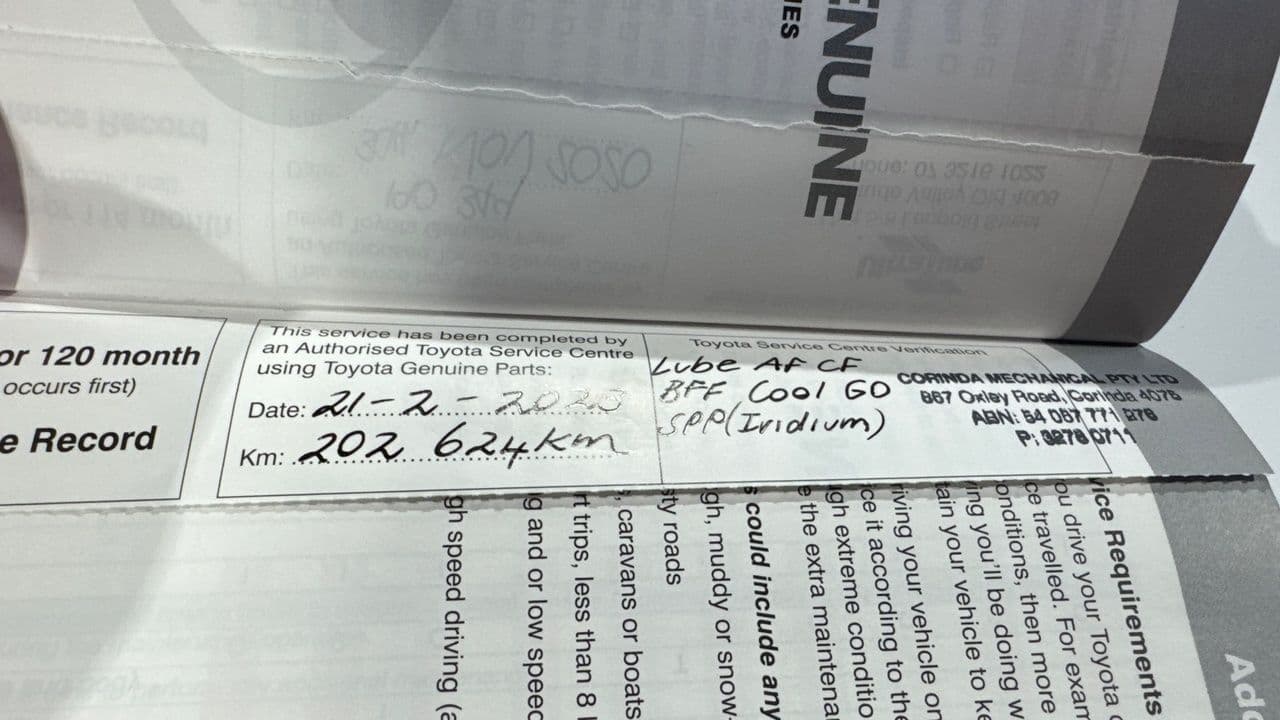 IES
ENUINE
or 120 month
occurs first)
e Record
This service has been completed by
an Authorised Toyota Service Centre
using Toyota Genuine Parts:
Date: 21-2-
Km: 202 624km
Toyota Service Centre Verification
Lube AF CF
BFF, Cool GO
SPP(Iridium)
CORINDA MECHANICAL PTY LTD
867 Oxley Road, Corinda 4075
ABN: 54 087 771 276
P: 3278 0711
vice Requirements
ou drive your Toyota
ce travelled. For exam
onditions, then more
ing you'll be doing w
tain your vehicle to ke
riving your vehicle on
ice it according to the
ugh extreme conditio
e the extra maintena
s could include any
gh, muddy or snow-
sty roads
s, caravans or boats
rt trips, less than 8
g and or low speed
gh speed driving (a
Add